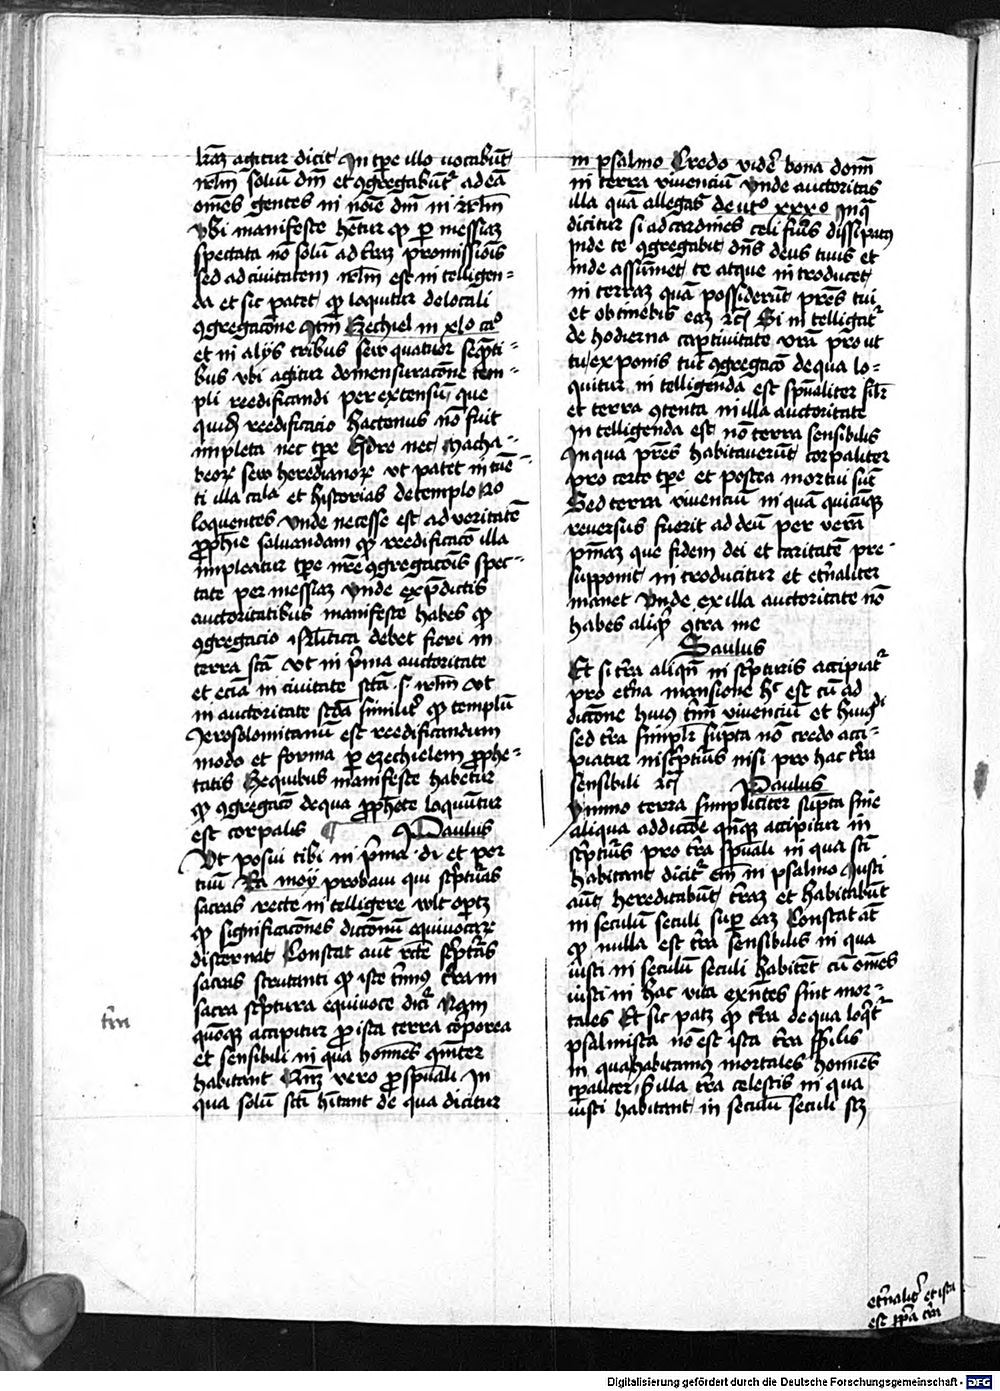 lr̄az agitur dicit In tp̄e illo uocabūt
irl̄m soliū dn̄i et ɔgregabūtʳ ad eā
om̄es gentes in noīe dn̄i in irl̄m
vbi manifeste hētur qͥ per messiaz
spectata nō solū ad tr̄az promissiōis
sed ad ciuitatem irl̄m est intelligen=
da et sic patet qͥ loquitur de locali
ɔgregacōne Itm̄ Ezechiel in xlo cao
et in alijs tribus seu quatuor seq̄nti=
bus vbi agitur de mensuracōne tem=
pli reedificandi per extensū que
quidē reedificacio hactenus nō fuit
impleta nec tp̄e Esdre nec Macha=
beorꝝ seu heredianorꝝ vt patet intuē=
ti illa cala et historias de templo
loquentes Vnde necesse est ad veritatē
prophīe saluandam qͥ reedificacō illa
impleatur tp̄e nr̄e ɔgregacōis spec=
tate per messiaz Vnde ex p̄dictis
auctoritatibus manifeste habes qͥ
ɔgregacio isrl̄itica debet fieri in
terra sc̄ā vt in pͥma auctoritate
et eciā in ciuitate sc̄ā .s. irl̄m vt
in auctoritate sc̄dā similitʳ qͥ templū
Jerosolomitanū est reedificandum
modo et forma per ezechielem prophe=
tatis Ex quibus manifeste habetur
qͥ ɔgregacō de qua prophete loquūtur
est corpalis ¶ Paulus
Vt posui tibi in pͥma di et per
tuū Ra moy probaui qui sc̄pturas
sacras recte intelligere wlt oportꝫ
qͥ significacōnes dictōnū equiuocaꝝ
discernat Constat aut̄ recte sc̄pturas
sacras scrutanti qͥ iste tr̄minꝰ terra in
sacra sc̄ptura equiuoce dicitʳ Nam
quōqꝫ accipitur pro ista terra corporea
et sensibili in qua hoīes
habitant Qn̄qꝫ vero pro sp̄uali In
qua solū sc̄ti hītant de qua dicitur
in psalmo Credo videre bona domī
in terra viuenciū Vnde auctoritas
illa quā allegas deutº xxxº In qͣ
dicitur si ad cardines celi fuͥs dissipatꝰ
inde te ɔgregabit dn̄s deus tuus et
inde assūmet te atque introducet
in terraz quā possiderūt pr̄es tui
et obtinebis eaz etc Si intelligatʳ
de hodierna captiuitate vrā prout
tu exponis tūc ɔgregacō de qua lo=
quitur intelligenda est sp̄ualiter silʳ
et terra ɔtenta in illa auctoritate
Intelligenda est nō terra sensibilis
In qua pr̄es habitauerūt corpaliter
pro certo tp̄e et postea mortui sūt
Sed terra viuenciū in quā quicūqꝫ
reuersus fuerit ad deū per verā
pn̄iaz que fidem dei et caritatē pre=
supponit introducitur et etn̄aliter
manet Vnde ex illa auctoritate nō
habes aliqͥd ɔtra me
Saulus
Et si tr̄a aliqn̄ in sc̄pturis accipiatʳ
pro etn̄a mansione hͦ est cū ad
dictōne huiꝰ tr̄mi viuenciū et huiꝰdi
sed tr̄a simplr̄ supta nō credo acci=
piatur in sc̄pturis nisi pro hac tr̄a
sensibili etc Paulus
Ymmo terra simpliciter supta sine
aliqua addicōne qn̄qꝫ accipitur in
sc̄pturis pro tr̄a sp̄uali in qua sc̄ti
habitant dicitʳ em̄ in psalmo Iusti
aut̄ hereditabūt tr̄az et habitabūt
in seculū seculi super eaz Constat aūt
qͥ nulla est tr̄a sensibilis in qua
iusti in seculū seculi habitēt cū om̄es
iusti in hac vita exn̄tes sint mor=
tales Et sic patꝫ qͥ tr̄a de qua loqͥtʳ
psalmista nō est ista tr̄a sensibilis
in qua habitamꝰ mortales hoīes
tp̄aliter sꝫ illa tr̄a celestis in qua
iusti habitant in seculū seculi sꝫ
etn̄alitʳ et ista
est ppͥa tr̄a
Digitalisierung gefördert durch die Deutsche Forschungsgemeinschaft - DFG